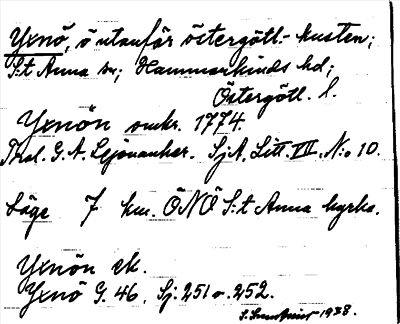 Yxnö, ö utanför östergötl.- kusten;
S:t Anna sn; Hammarkinds hd;
Östergötl. l.
Yxnön omkr. 1774.
G. A. Lejonanker. SjA. Litt. VIII. N:o 10.
Läge 7 km. ÖNÖ S:t Anna kyrka.
Yxnön ek.
Yxnö G. 46. Sj. 251 o. 252.
1938.